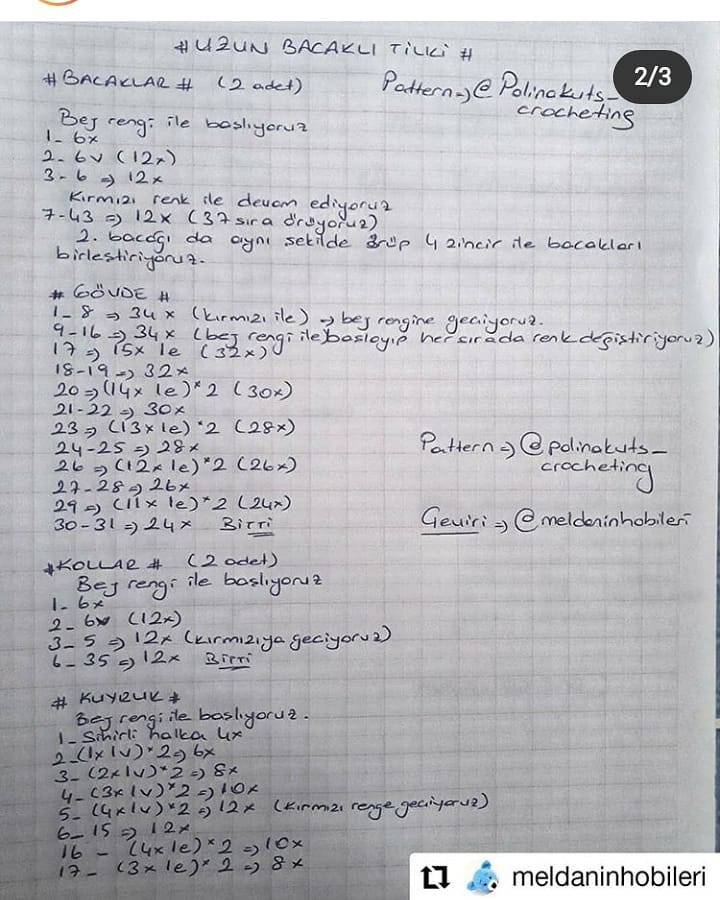 # UZUN BACAKLI TİLKİ #
2/3
# BACAKLAR # (2 adet)
Pattern => @ Polinakuts_
crocheting
Bej rengi ile başlıyoruz
1- 6x
2- 6v (12x)
3- 6 => 12x
Kırmızı renk ile devam ediyoruz
7-43 => 12x (37 sıra örüyoruz)
2. bacağı da aynı şekilde örüp 4 zincir ile bacakları
birleştiriyoruz.
# GÖVDE #
1- 8 => 34x (kırmızı ile) -> bej rengine geçiyoruz.
9-16 => 34x (bej rengi ile başlayıp her sırada renk değiştiriyoruz)
17 => 15x 1e (32x)
18-19 => 32x
20 => (14x 1e)*2 (30x)
21-22 => 30x
23 => (13x1e)*2 (28x)
24-25 => 28x
26 => (12x 1e)*2 (26x)
27-28 => 26x
29 => (11x 1e)*2 (24x)
30-31 => 24x Bitti
Pattern => @polinakuts_
crocheting
Çeviri => @meldaninhobileri
# KOLLAR # (2 adet)
Bej rengi ile başlıyoruz
1- 6x
2- 6v (12x)
3- 5 => 12x (kırmızıya geçiyoruz)
6- 35 => 12x Bitti
# KUYRUK #
Bej rengi ile başlıyoruz.
1- Sihirli halka 4x
2- (1x1v)*2 => 6x
3- (2x1v)*2 => 8x
4- (3x1v)*2 => 10x
5- (4x1v)*2 => 12x (kırmızı renge geçiyoruz)
6- 15 => 12x
16 - (4x1e)*2 => 10x
17- (3x1e)*2 => 8x
meldaninhobileri